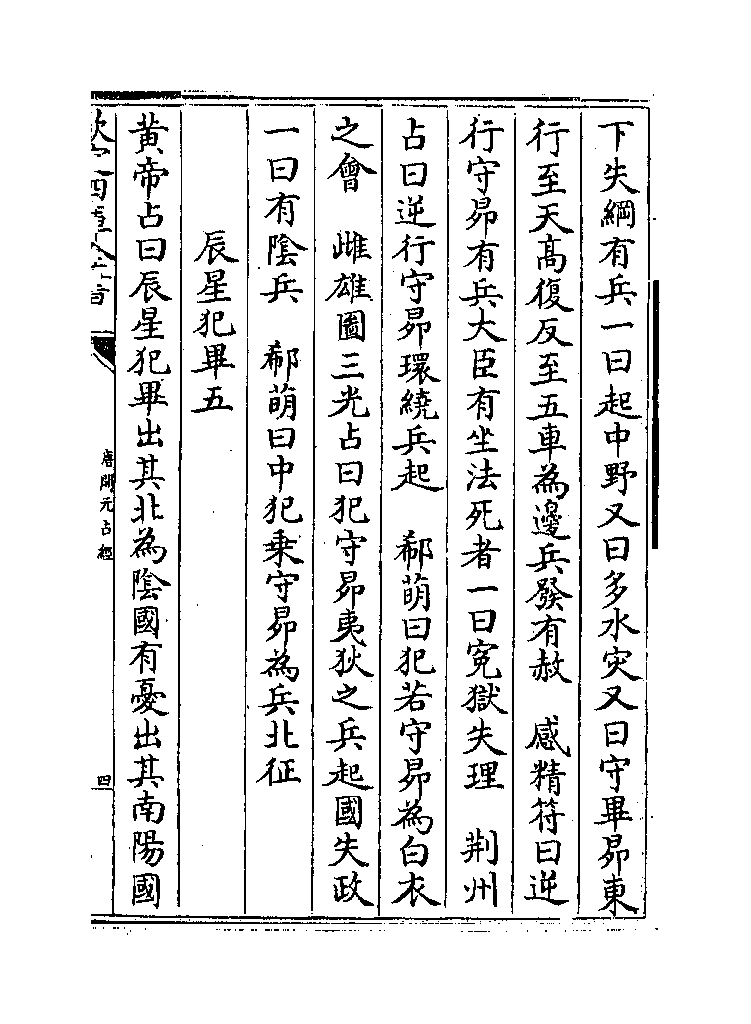 下失綱有兵一曰起中野又曰多水灾又曰守畢昴東
行至天高復反至五車為邊兵發有赦　感精符曰逆
行守昴有兵大臣有坐法死者一曰寃獄失理　荆州
占曰逆行守昴環繞兵起　郗萌曰犯若守昴為白衣
之會　雌雄圖三光占曰犯守昴夷狄之兵起國失政
一曰有陰兵　郗萌曰中犯乗守昴為兵北征
辰星犯畢五
黄帝占曰辰星犯畢出其北為陰國有憂出其南陽國
唐開元占經
四